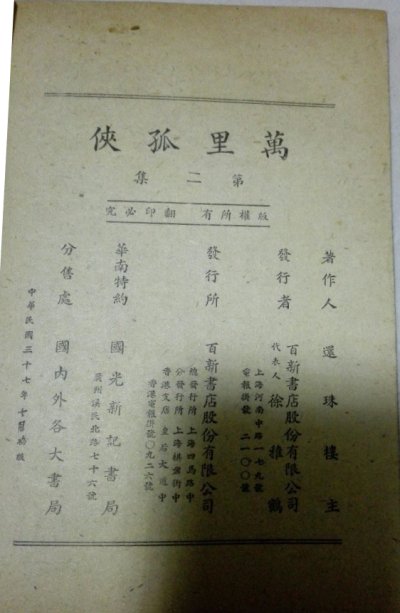 萬里孤俠
第二集
版權所有　翻印必究
著作人　還珠樓主
發行者　百新書店股份有限公司
代表人　徐稚鶴
上海河南中路一七九號
電報掛號　二一〇〇號
發行所　百新書店股份有限公司
總發行所　上海四馬路中
分發行所　上海棋盤街中
香港支店　皇后大道中
香港電報掛號〇九二六號
華南特約　國光新記書局
廣州漢民北路七十六號
分售處　國內外各大書局
中華民國三十七年十月初版